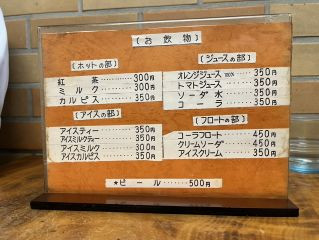 〔お飲物〕
〔ホットの部〕
紅茶……300円
ミルク……300円
カルピス……350円
〔ジュースの部〕
オレンジジュース 100% …350円
トマトジュース……350円
ソーダ水……350円
コーラ……350円
〔アイスの部〕
アイスティー……350円
アイスミルクティー…350円
アイスミルク……300円
アイスカルピス……350円
〔フロートの部〕
コーラフロート……450円
クリームソーダ……450円
アイスクリーム……350円
★ビール……500円